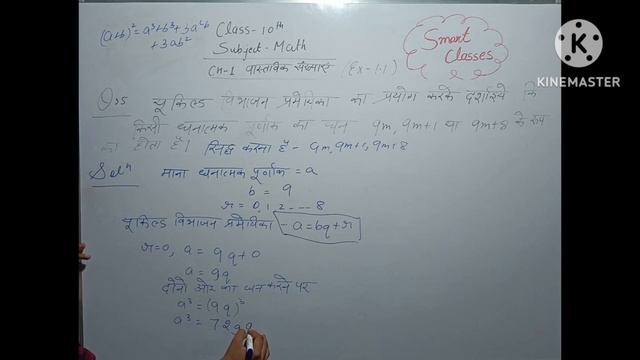 (a+b)² = a³+b³+3a²b
+3ab²
Class-10th
Subject-Math
CH-1 वास्तविक संख्याएं (Ex-1.1)
Smart
Classes
KINEMASTER
Q.5 यूक्लिड विभाजन प्रमेयिका का प्रयोग करके दर्शाइये कि
किसी धनात्मक पूर्णांक का घन 9m, 9m+1 या 9m+8 के रूप
का होता है। सिद्ध करना है - 9m, 9m+1, 9m+8
Solⁿ माना धनात्मक पूर्णांक = a
b = 9
r = 0, 1, 2 --- 8
यूक्लिड विभाजन प्रमेयिका - a = bq + r
r=0, a = 9q+0
a = 9q
दोनो ओर का घन करने पर
a³ = (9q)³
a³ = 729